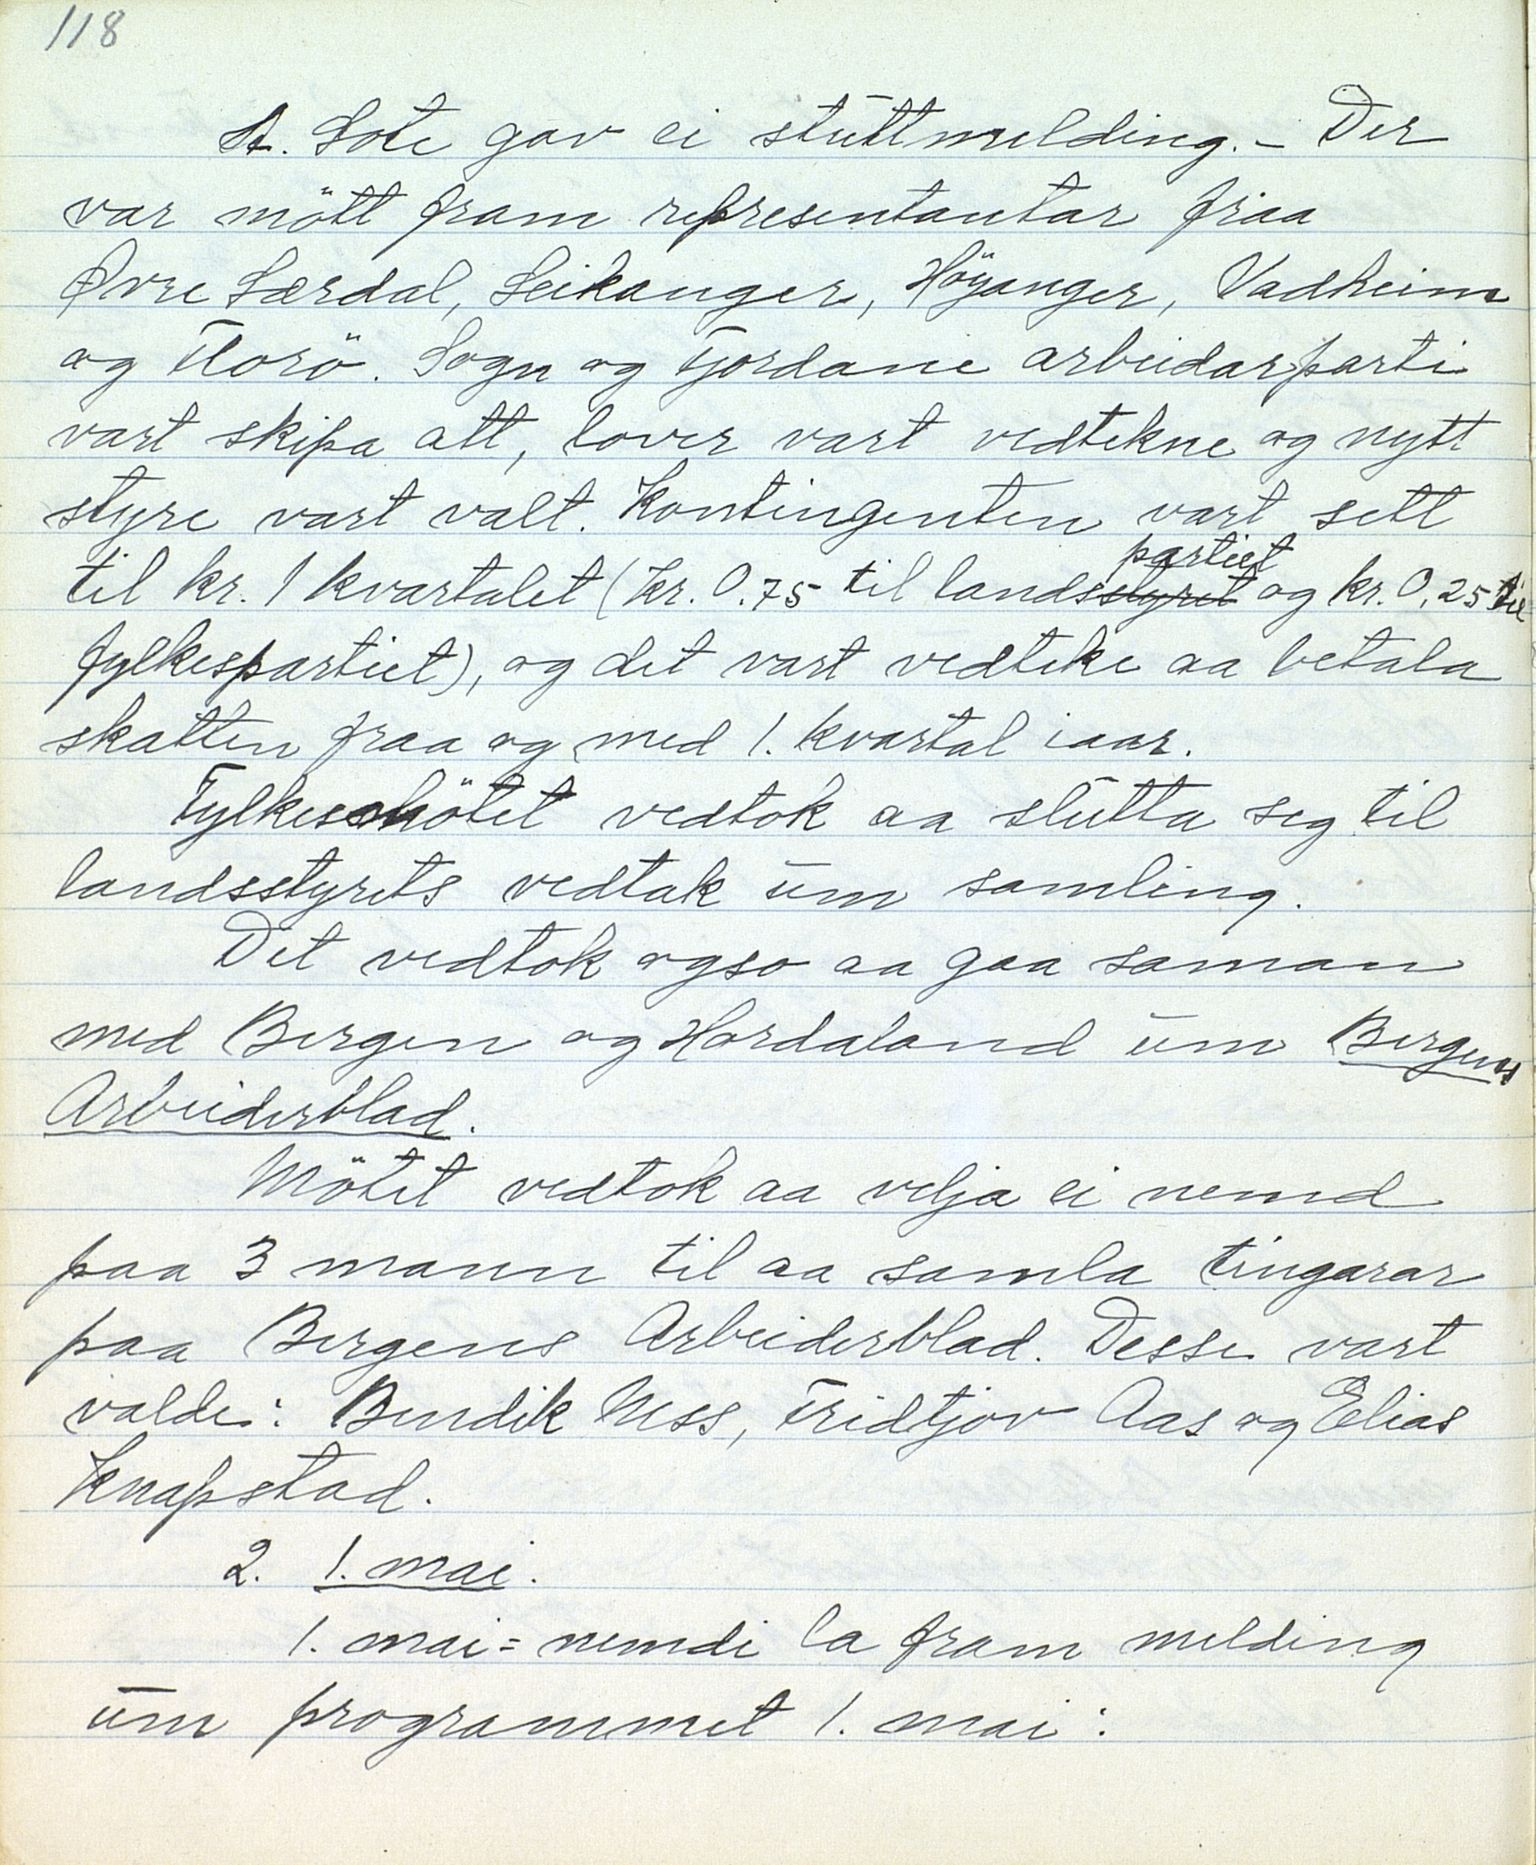 118
A. Sote gav ei stuttmelding. – Der
var mött fram representantar fraa
Øvre Lærdal, Leikanger, Höyanger, Vadheim
og Florö. Sogn og Fjordane arbeidarparti
vart skipa att, lover vart vedtekne og nytt
styre vart valt. Kontingenten vart sett
partiet
til kr. 1 kvartalet (kr. 0.75 til landsstyret og kr. 0,25 til
fylkespartiet), og det vart vedteke aa betala
skatten fraa og med 1. kvartal iaar.
Fylkesmötet vedtok aa slutta seg til
landsstyrets vedtak um samling.
Det vedtok ogso aa gaa saman
med Bergen og Hordaland um Bergens
Arbeiderblad.
Mötet vedtok aa velja ei nemd
paa 3 mann til aa samla tingarar
paa Bergens Arbeiderblad. Desse vart
valde: Bendik Ness, Fridtjov Aas og Elias
Knapstad.
2. 1. mai.
1. mai=nemdi la fram melding
um programmet 1. mai: